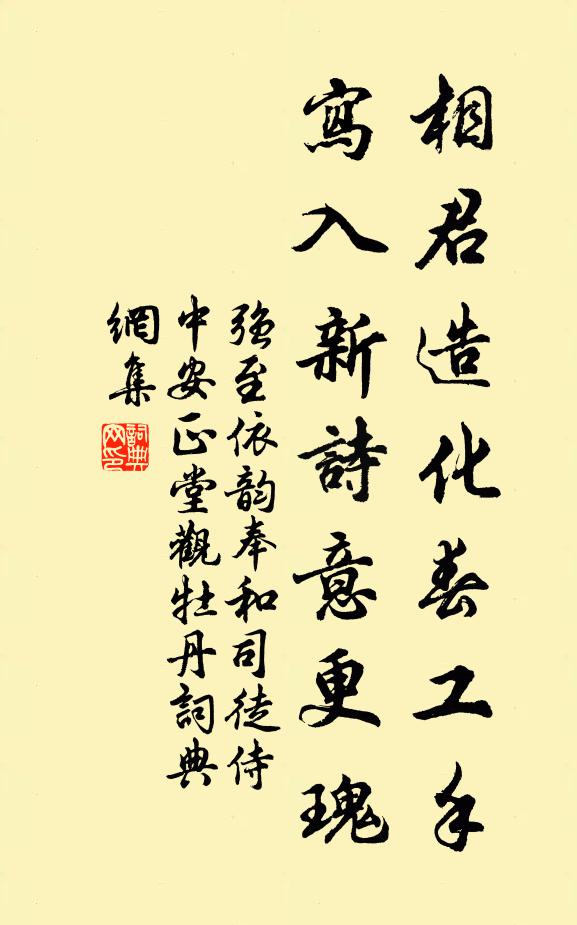 相君造化春工手
寫入新詩意更瑰
強至依韵奉和司徒侍
中安正堂觀牡丹詞典
網集
詞典
网印